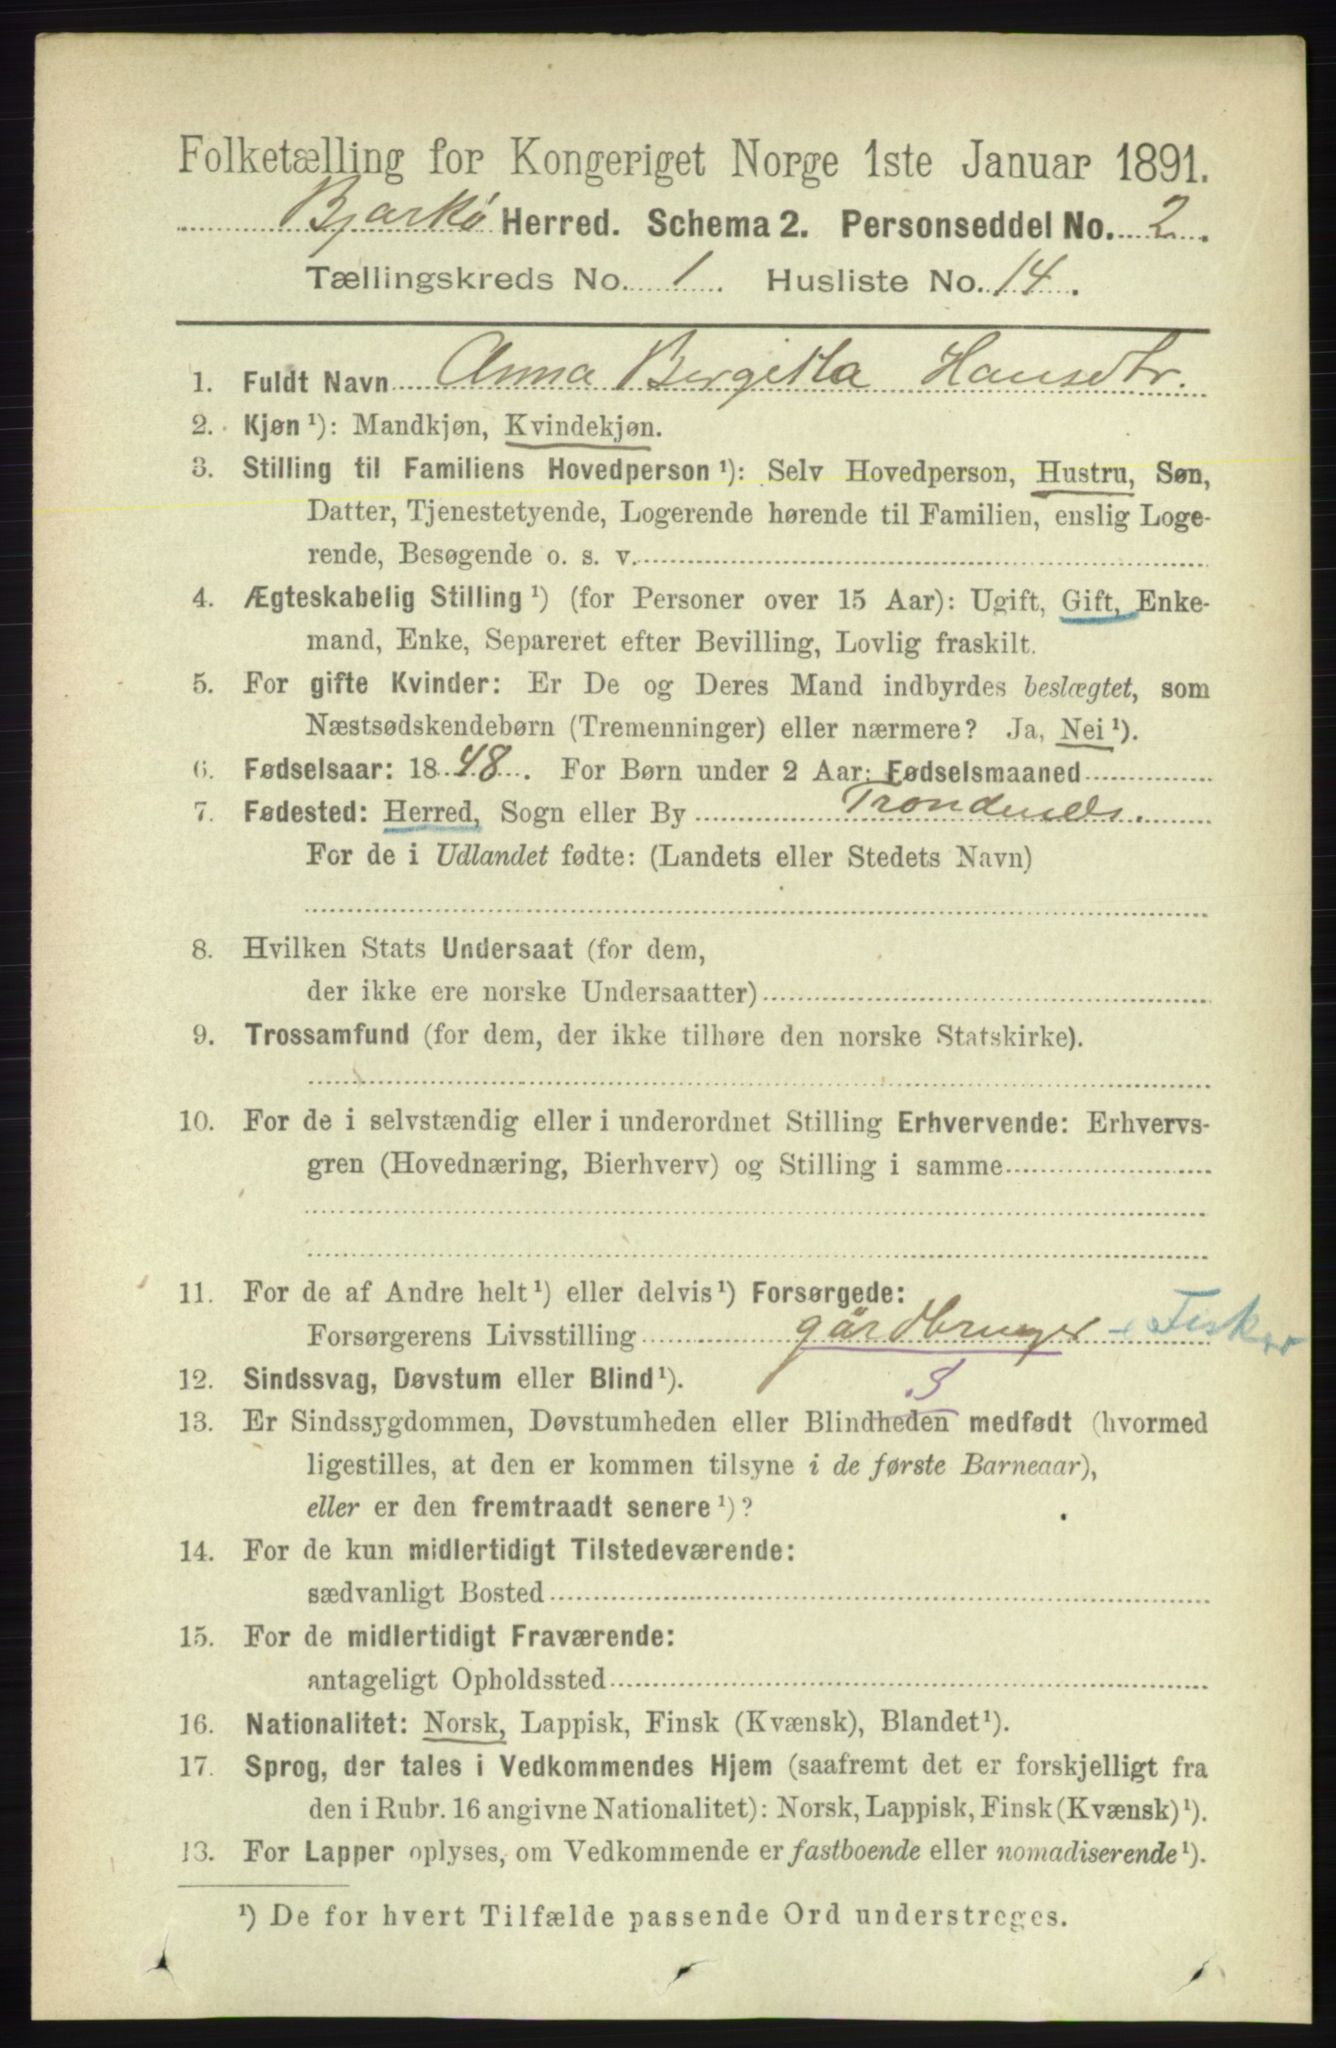 Folketælling for Kongeriget Norge 1ste Januar 1891.
Bjarkø Herred. Schema 2. Personseddel No. 2.
Tællingskreds No. 1. Husliste No. 14.
1. Fuldt Navn Anna Bergitta Hansdtr.
2. Kjøn ¹): Mandkjøn, Kvindekjøn.
3. Stilling til Familiens Hovedperson ¹): Selv Hovedperson, Hustru, Søn,
Datter, Tjenestetyende, Logerende hørende til Familien, enslig Loge-
rende, Besøgende o. s. v.
4. Ægteskabelig Stilling ¹) (for Personer over 15 Aar): Ugift, Gift, Enke-
mand, Enke, Separeret efter Bevilling, Lovlig fraskilt.
5. For gifte Kvinder: Er De og Deres Mand indbyrdes beslægtet, som
Næstsødskendebørn (Tremenninger) eller nærmere? Ja, Nei ¹).
6. Fødselsaar: 1848. For Børn under 2 Aar: Fødselsmaaned
7. Fødested: Herred, Sogn eller By Trondenes.
For de i Udlandet fødte: (Landets eller Stedets Navn)
8. Hvilken Stats Undersaat (for dem,
der ikke ere norske Undersaatter)
9. Trossamfund (for dem, der ikke tilhøre den norske Statskirke).
10. For de i selvstændig eller i underordnet Stilling Erhvervende: Erhvervs-
gren (Hovednæring, Bierhverv) og Stilling i samme
11. For de af Andre helt ¹) eller delvis ¹) Forsørgede:
Forsørgerens Livsstilling gårdbruger + Fisker
12. Sindssvag, Døvstum eller Blind ¹). 3
13. Er Sindssygdommen, Døvstumheden eller Blindheden medfødt (hvormed
ligestilles, at den er kommen tilsyne i de første Barneaar),
eller er den fremtraadt senere ¹)?
14. For de kun midlertidigt Tilstedeværende:
sædvanligt Bosted
15. For de midlertidigt Fraværende:
antageligt Opholdssted
16. Nationalitet: Norsk, Lappisk, Finsk (Kvænsk), Blandet ¹).
17. Sprog, der tales i Vedkommendes Hjem (saafremt det er forskjelligt fra
den i Rubr. 16 angivne Nationalitet): Norsk, Lappisk, Finsk (Kvænsk) ¹).
13. For Lapper oplyses, om Vedkommende er fastboende eller nomadiserende ¹).
¹) De for hvert Tilfælde passende Ord understreges.